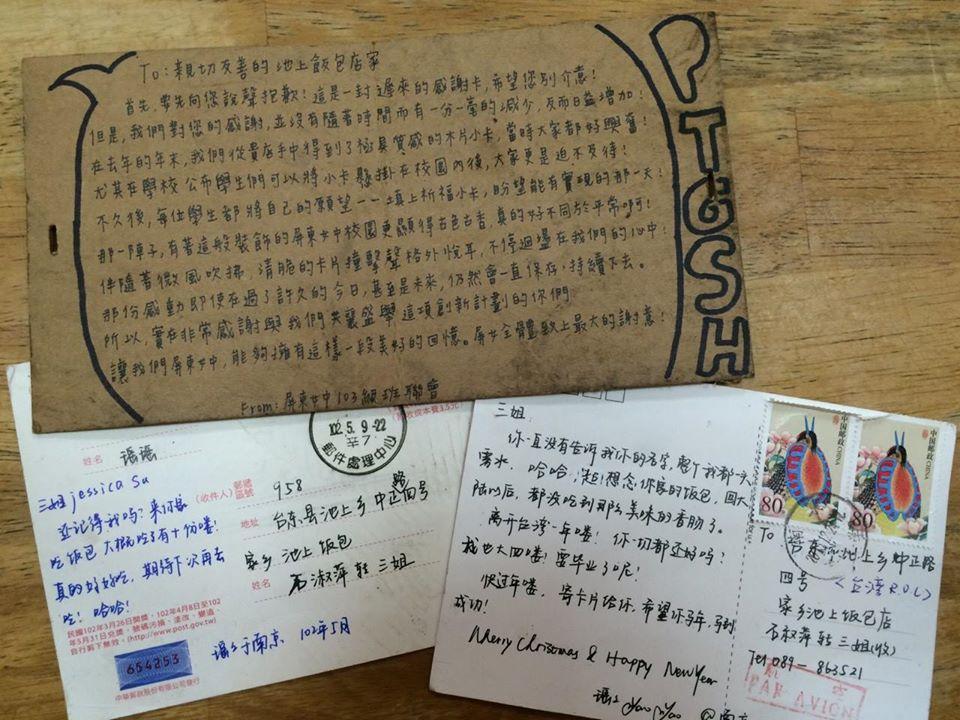 To:親切友善的池上飯包店家
首先,要先向您說聲抱歉!這是一封遲來的感謝卡,希望您別介意!
但是,我們對您的感謝,並沒有隨著時間而有一分一毫的減少,反而日益增加!
在去年的年末,我們從貴店手中得到了極具質感的木片小卡,當時大家都好興奮!
尤其在學校公布學生們可以將小卡懸掛在校園內後,大家更是迫不及待!
不久後,每位學生都將自己的願望一一填上祈福小卡,盼望能有實現的那一天!
那一陣子,有著這般裝飾的屏東女中校園更顯得古色古香,真的好不同於平常啊!
伴隨著微風吹拂,清脆的卡片撞擊聲格外悅耳,不停迴盪在我們的心中!
那份感動即使在過了許久的今日,甚至是未來,仍然會一直保存、持續下去。
所以,實在非常感謝與我們共襄盛舉這項創新計劃的你們
讓我們屏東女中,能夠擁有這樣一段美好的回憶。屏女全體致上最大的謝意!
From:屏東女中103級班聯會
PTGSH
102.5.9-22
郵件處理中心
姓名
三姐 jessica Su
还记得我吗?来你家
吃饭包 大概吃了有十份喽!
真的好好吃,期待下次再去
吃!哈哈!
(收件人)
郵遞區號
958
地址
台东县池上乡中正路四号
家乡池上饭包
姓名
石淑萍转三姐
民國102年3月26日開獎,102年4月8日至102
年5月31日兌獎,號碼污損、塗改、變造、
自行剪下無效。(http://www.post.gov.tw)
654253
中華郵政股份有限公司發行
于南京 102年5月
三姐:
你一直没有告诉我你的名字,
哈哈,想念你家的饭包,回大
陆以后,都没吃到那么美味的香肠了。
离开台湾一年喽!你一切都还好吗?
我也大四喽!要毕业了呢!
快过年喽,寄卡片给你,希望你马年,马到
成功!
Merry Christmas & Happy New Year
Yao Yao @南京
中国邮政
CHINA
80
中国邮政
CHINA
80
To
台东县池上乡中正路
四号
(台湾R.O.C)
家乡池上饭包店
石淑萍转三姐(收)
Tel 089-863521
航 空
PAR AVION